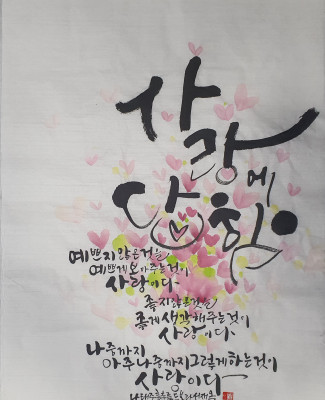 사랑에
답함
예쁘지 않은 것을
예쁘게 보아주는 것이
사랑이다
좋지 않은 것을
좋게 생각해 주는 것이
사랑이다
나중까지
아주 나중까지 그렇게 하는 것이
사랑이다